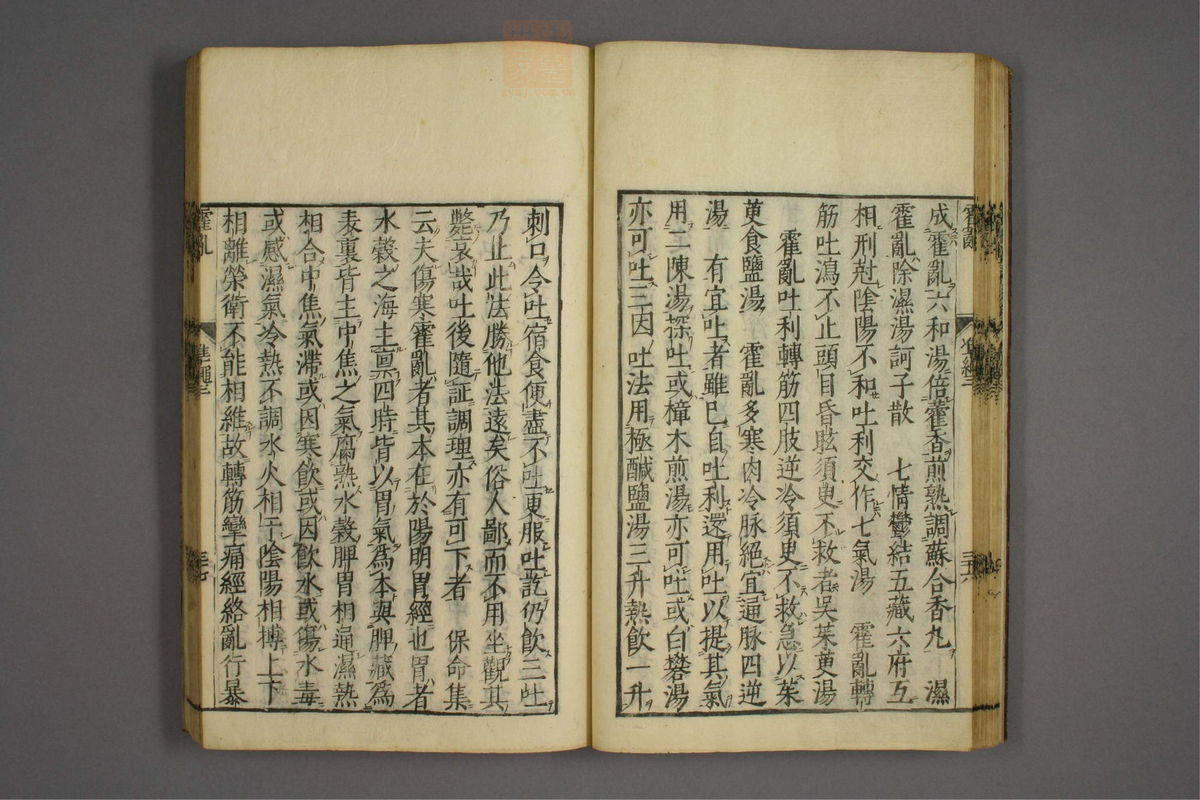 成霍亂六和湯倍藿香煎熟調蘇合香丸　濕
霍亂除濕湯訶子散　七情鬱結五藏六府互
相刑尅陰陽不和吐利交作七氣湯　霍亂轉
筋吐瀉不止頭目昏眩須臾不救者吳茱萸湯
霍亂吐利轉筋四肢逆冷須臾不救急以茱
萸食鹽湯　霍亂多寒肉冷脉絕宜通脉四逆
湯　有宜吐者雖已自吐利還用吐以提其氣
用二陳湯探吐或樟木煎湯亦可吐或白礬湯
亦可吐三因　吐法用極醎鹽湯三升熱飲一升
刺口令吐宿食便盡不吐更服吐訖仍飲三吐
乃止此法勝他法遠矣俗人鄙而不用坐觀其
斃哀哉吐後隨証調理亦有可下者　保命集
云夫傷寒霍亂者其本在於陽明胃經也胃者
水穀之海主稟四時皆以胃氣爲本與脾藏爲
表裏皆主中焦之氣腐熟水穀脾胃相通濕熱
相合中焦氣滯或因寒飲或因飲水或傷水毒
或感濕氣冷熱不調水火相干陰陽相搏上下
相離榮衛不能相維故轉筋攣痛經絡亂行暴
霍亂
三七